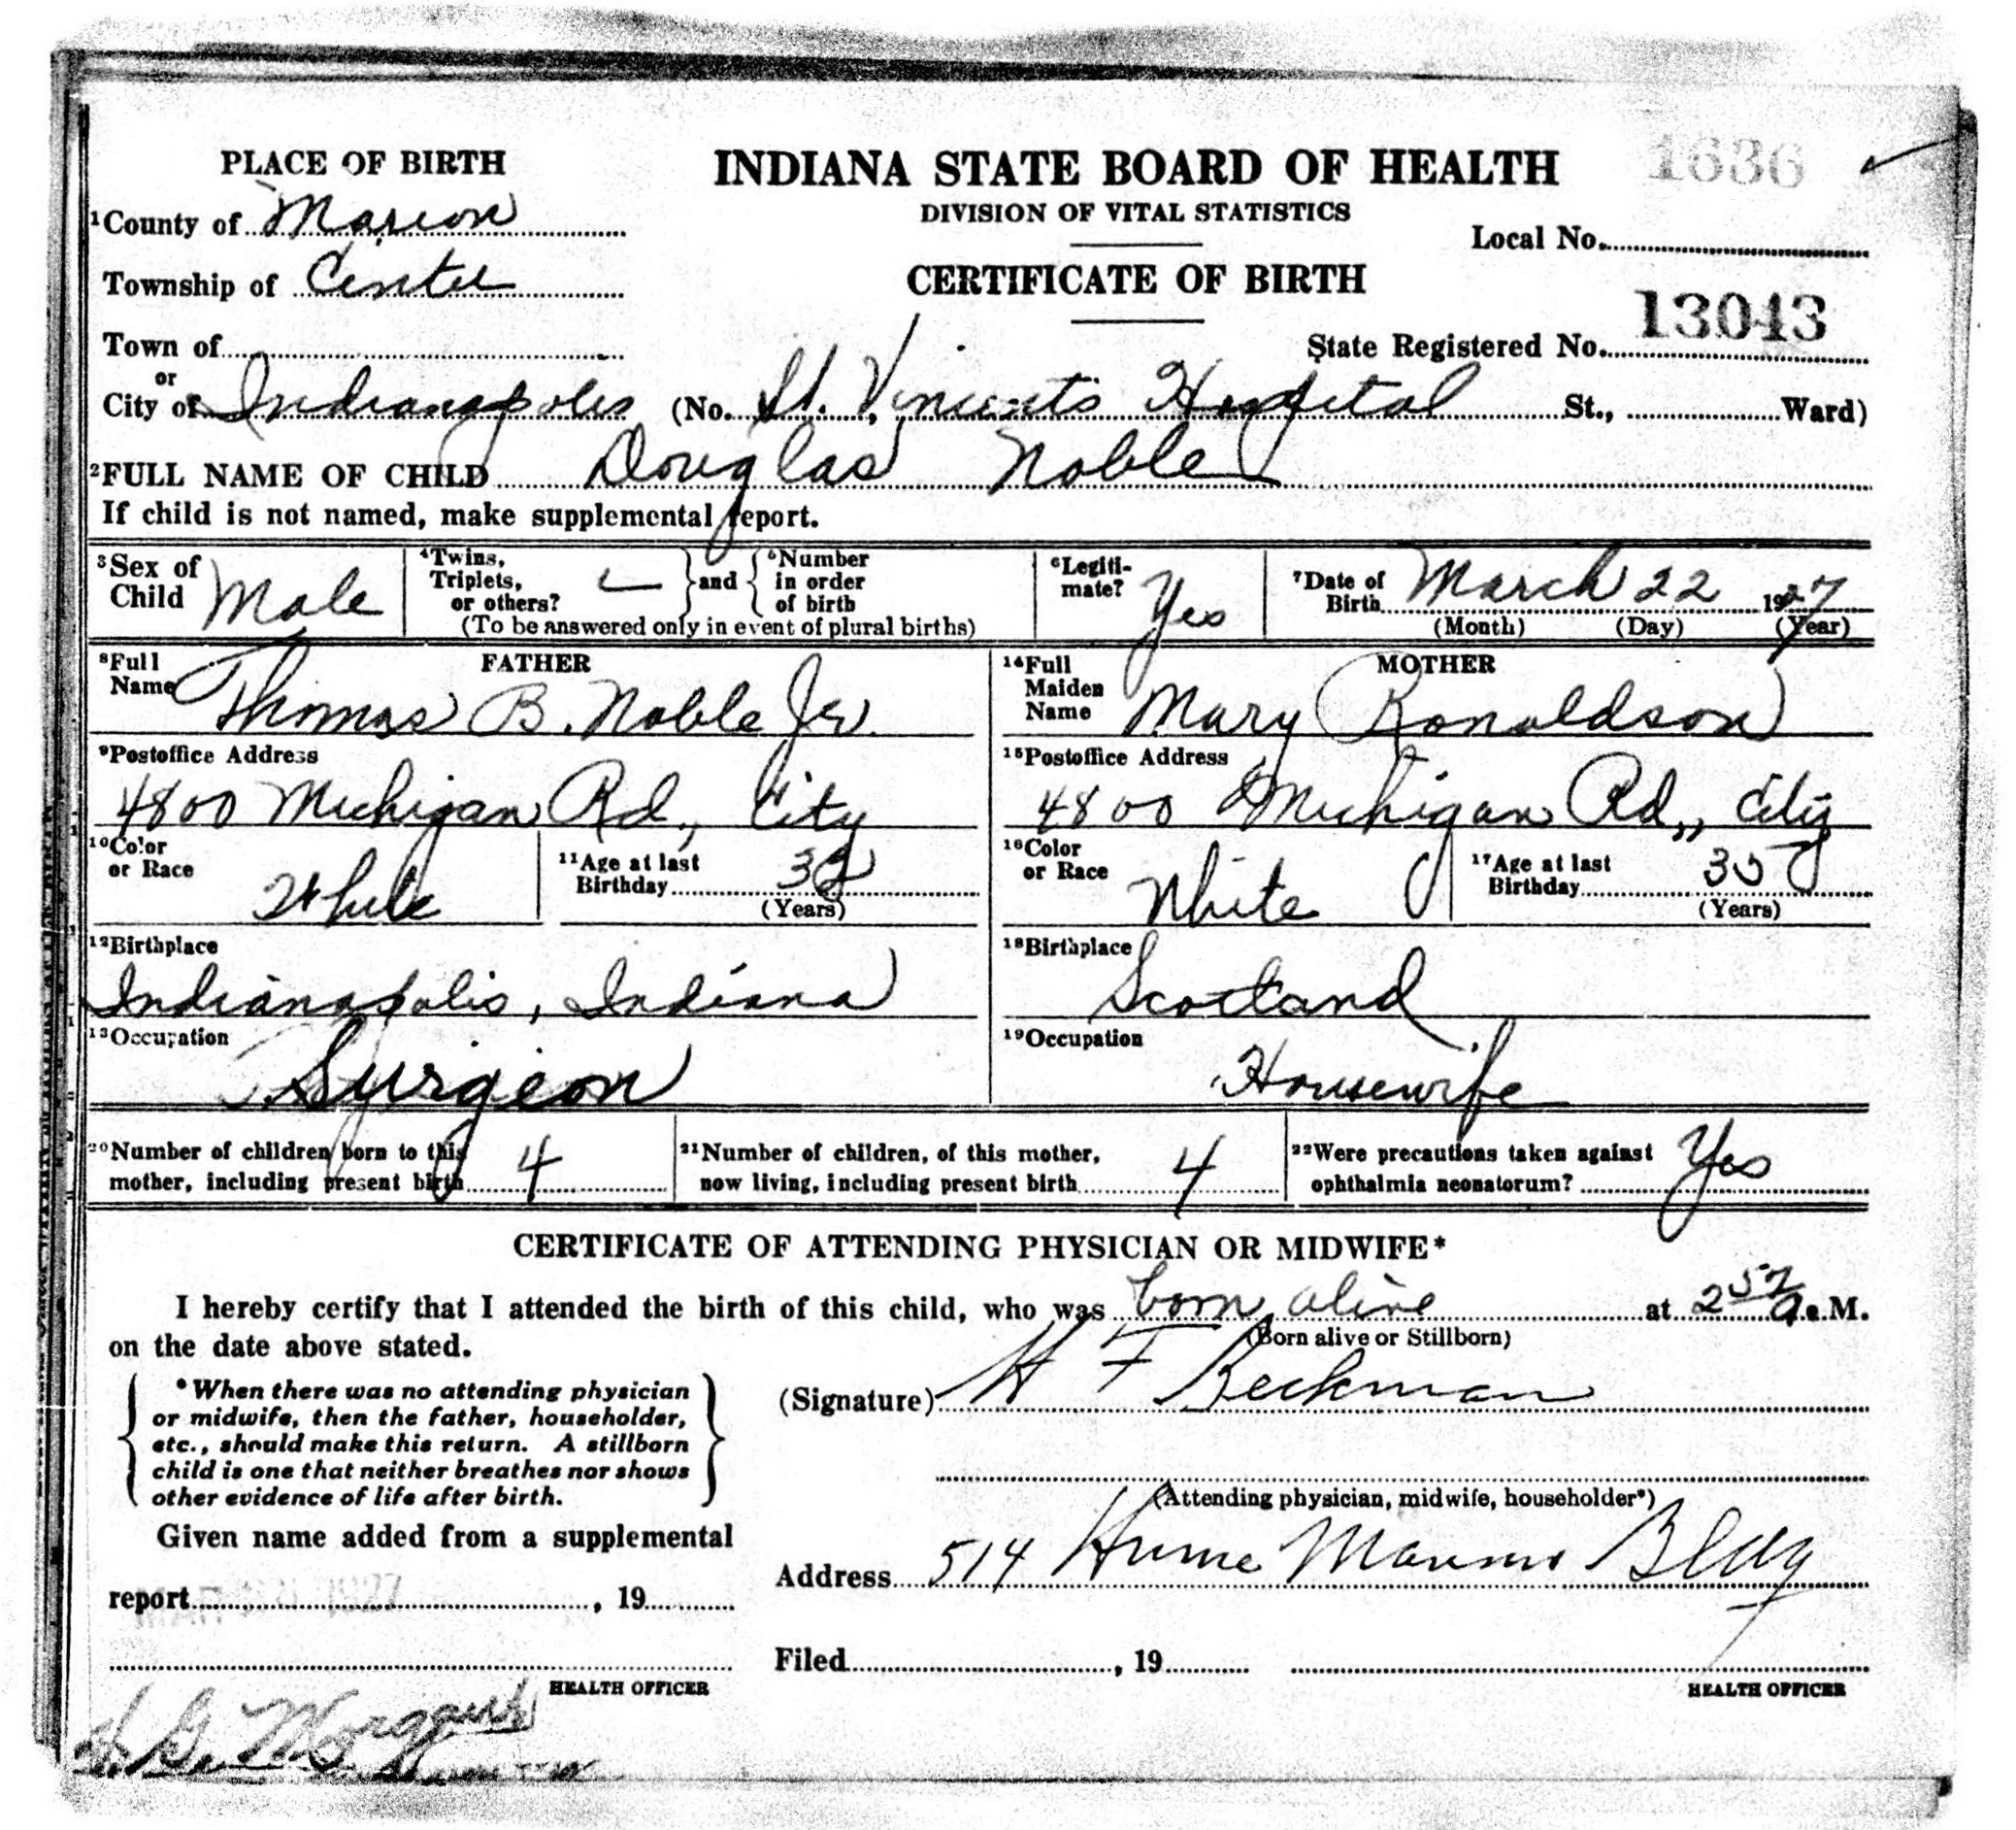 PLACE OF BIRTH
INDIANA STATE BOARD OF HEALTH
1636
DIVISION OF VITAL STATISTICS
1 County of Marion
Local No.
Township of Center
CERTIFICATE OF BIRTH
13043
Town of
State Registered No.
or
City of Indianapolis (No. St. Vincents Hospital St., Ward)
2 FULL NAME OF CHILD Douglas Noble
If child is not named, make supplemental report.
3 Sex of Child Male
4 Twins, Triplets, or others? and 5 Number in order of birth
(To be answered only in event of plural births)
6 Legitimate? Yes
7 Date of Birth March 22 1927
(Month) (Day) (Year)
FATHER
8 Full Name Thomas B. Noble Jr.
9 Postoffice Address
4800 Michigan Rd., City
10 Color or Race White
11 Age at last Birthday 32
(Years)
12 Birthplace
Indianapolis, Indiana
13 Occupation
Surgeon
MOTHER
14 Full Maiden Name Mary Ronaldson
15 Postoffice Address
4800 Michigan Rd., City
16 Color or Race White
17 Age at last Birthday 35
(Years)
18 Birthplace
Scotland
19 Occupation
Housewife
20 Number of children born to this mother, including present birth 4
21 Number of children, of this mother, now living, including present birth 4
22 Were precautions taken against ophthalmia neonatorum? Yes
CERTIFICATE OF ATTENDING PHYSICIAN OR MIDWIFE*
I hereby certify that I attended the birth of this child, who was born alive at 2 57 a.M.
(Born alive or Stillborn)
on the date above stated.
*When there was no attending physician
or midwife, then the father, householder,
etc., should make this return. A stillborn
child is one that neither breathes nor shows
other evidence of life after birth.
(Signature) H F Beckman
(Attending physician, midwife, householder*)
Given name added from a supplemental
report, 19
HEALTH OFFICER
Address 514 Hume Mansur Bldg
Filed, 19
HEALTH OFFICER
H. G. Morgan